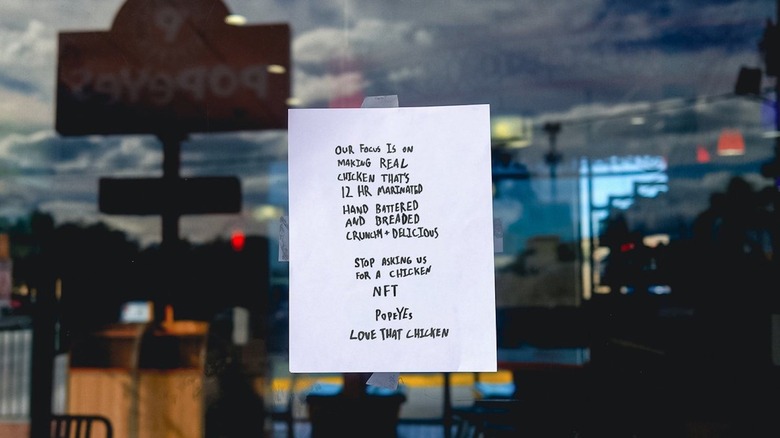 POPEYES
OUR FOCUS IS ON
MAKING REAL
CHICKEN THAT'S
12 HR MARINATED
HAND BATTERED
AND BREADED
CRUNCHY + DELICIOUS
STOP ASKING US
FOR A CHICKEN
NFT
POPEYES
LOVE THAT CHICKEN